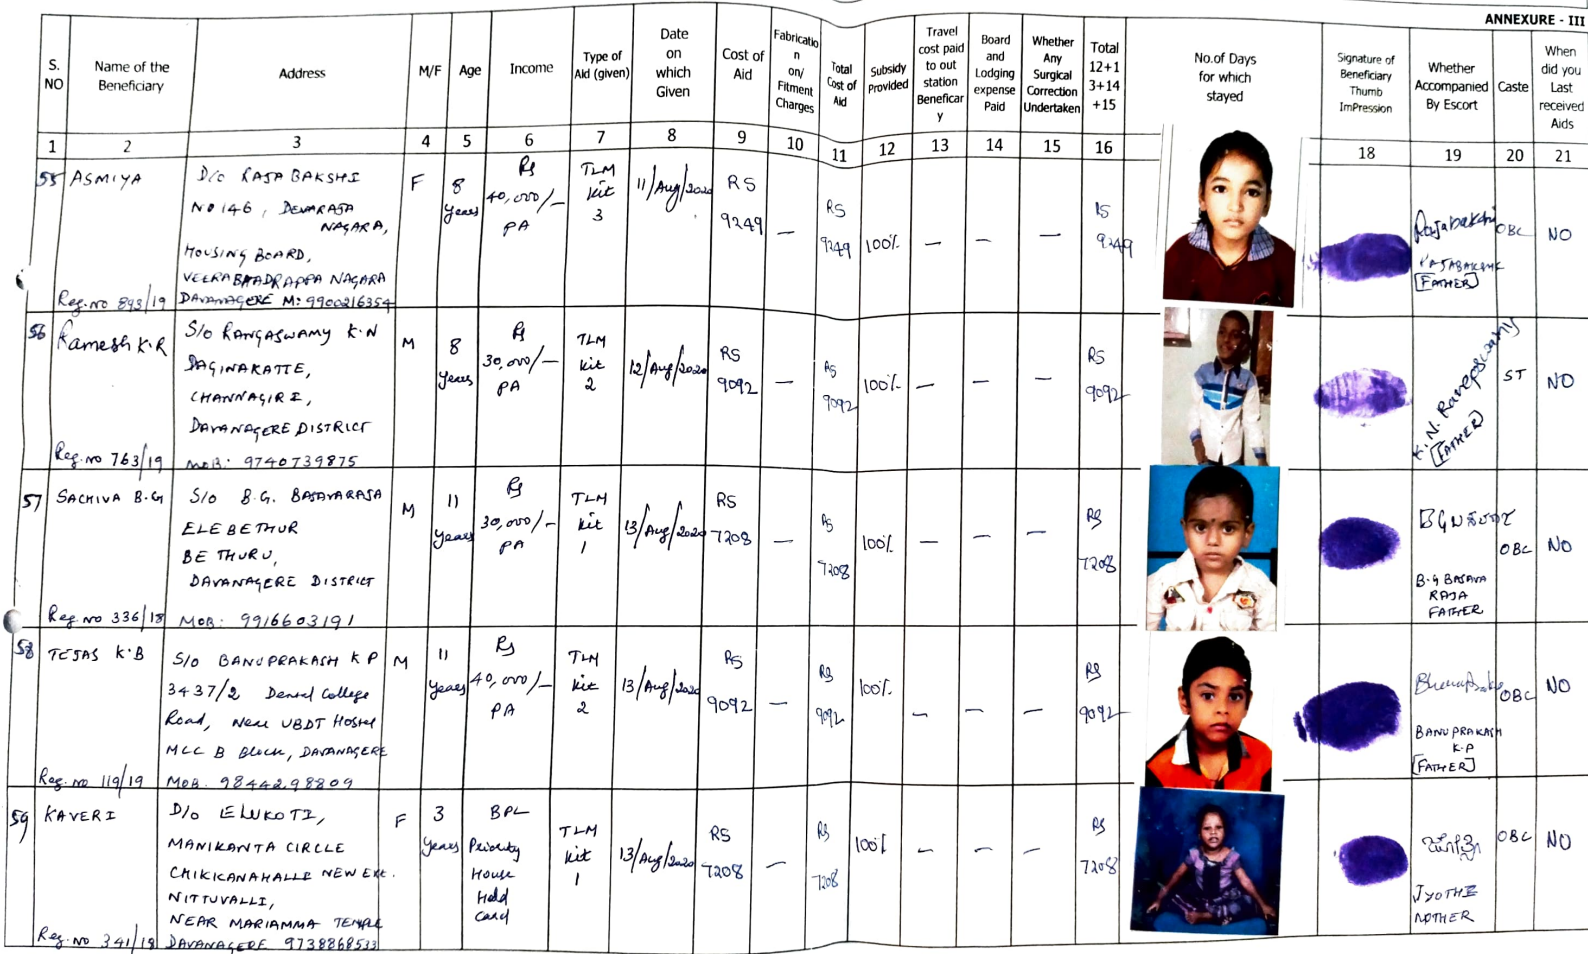 ANNEXURE - III
S. NO
Name of the Beneficiary
Address
M/F
Age
Income
Type of Aid (given)
Date on which Given
Cost of Aid
Fabricatio n on/ Fitment Charges
Total Cost of Aid
Subsidy Provided
Travel cost paid to out station Beneficar y
Board and Lodging expense Paid
Whether Any Surgical Correction Undertaken
Total 12+1 3+14 +15
No.of Days for which stayed
Signature of Beneficiary Thumb ImPression
Whether Accompanied By Escort
Caste
When did you Last received Aids
1 2 3 4 5 6 7 8 9 10 11 12 13 14 15 16 18 19 20 21
55 ASMIYA
Reg.no 893/19
D/o RAJA BAKSHI
NO 146, DEVARAJA
NAGARA,
HOUSING BOARD,
VEERABHADRAPPA NAGARA
DAVANAGERE M: 9900216354
F
8 years
Rs 40,000/- PA
TLM Kit 3
11/Aug/2020
RS 9249
—
RS 9249
100%
—
—
—
RS 9249
Rajabakshi
RAJABAKSHI
[FATHER]
OBC
NO
56 Ramesh K.R
Reg.no 763/19
S/o RANGASWAMY K.N
DAGINAKATTE,
CHANNAGIRI,
DAVANAGERE DISTRICT
MOB: 9740739875
M
8 years
Rs 30,000/- PA
TLM Kit 2
12/Aug/2020
RS 9092
—
RS 9092
100%
—
—
—
RS 9092
K.N. Rangaswamy
[FATHER]
ST
NO
57 SACHIVA B.G
Reg.no 336/18
S/o B.G. BASAVARAJA
ELEBETHUR
BETHURU,
DAVANAGERE DISTRICT
MOB: 9916603191
M
11 years
Rs 30,000/- PA
TLM Kit 1
13/Aug/2020
RS 7208
—
RS 7208
100%
—
—
—
RS 7208
B.G BASAVA
RAJA
FATHER
OBC
NO
58 TEJAS K.B
Reg.no 119/19
S/o BANUPRAKASH K P
3437/2 Dental College
Road, Near UBDT Hostel
MCC B Block, DAVANAGERE
MOB. 9844298809
M
11 years
Rs 40,000/- PA
TLM Kit 2
13/Aug/2020
RS 9092
—
RS 9092
100%
—
—
—
RS 9092
BANUPRAKASH
K.P
[FATHER]
OBC
NO
59 KAVERI
Reg.no 341/18
D/o ELUKOTI,
MANIKANTA CIRCLE
CHIKKANAHALLI NEW EXt.
NITTUVALLI,
NEAR MARIAMMA TEMPLE
DAVANAGERE 9738868533
F
3 years
BPL Priority House Hold Card
TLM Kit 1
13/Aug/2020
RS 7208
—
RS 7208
100%
—
—
—
RS 7208
ಜ್ಯೋತಿ
JYOTHI
MOTHER
OBC
NO